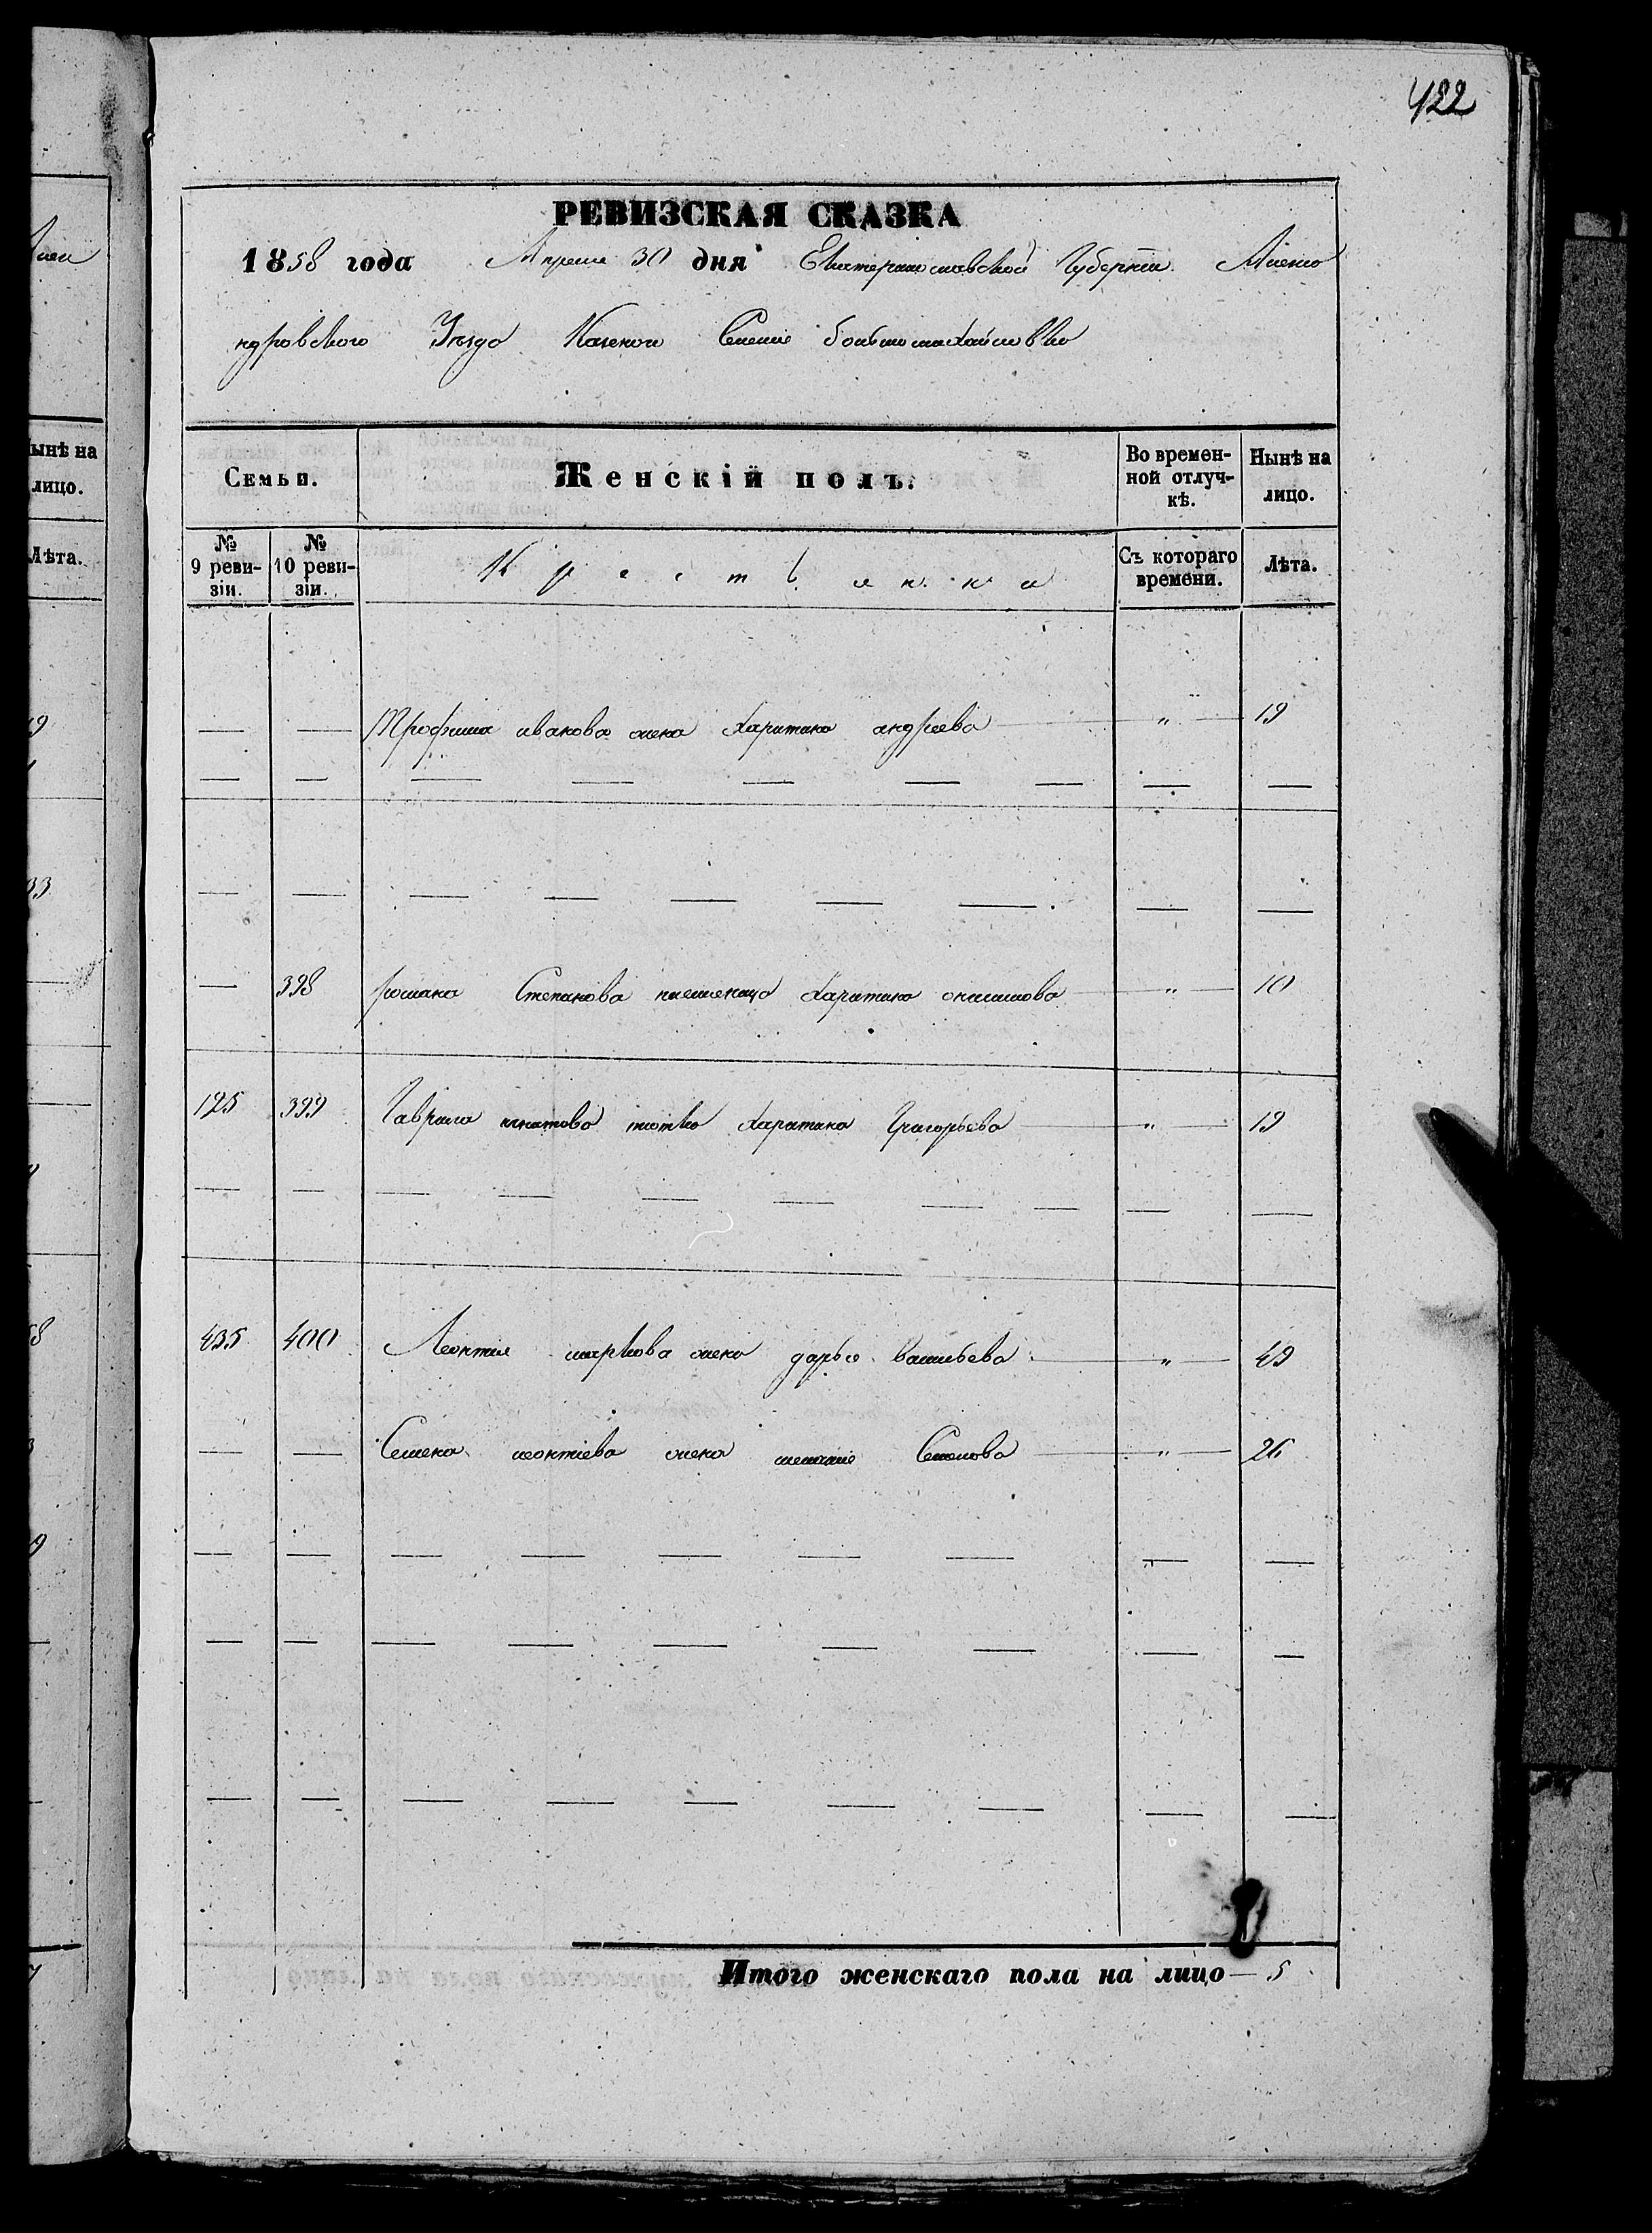 422
РЕВИЗСКАЯ СКАЗКА
1858 года Апреля 30 дня Екатеринославской Губернии Алекса
ндровского Уезда Казенои Селение большомихайловка
Семьи.
Женскій полъ.
Во времен-
ной отлуч-
кѣ.
Нынѣ на
лицо.
№
9 реви-
зіи.
№
10 реви-
зіи.
Крестьянки
Съ котораго
времени.
Лѣта.
— — Трофима иванова жена харитина андреева — " — 19
— 398 романа Степанова племеница харитина онисимова — " — 10
125 399 Гаврила игнатова тютка харитина Григорьева — " — 19
435 400 Леонтия маркова жена дарья васильева — " — 49
— — Семена леонтіева жена Семенова — " — 26
Итого женскаго пола на лицо — 5
ынѣ на
лицо.
Лѣта.